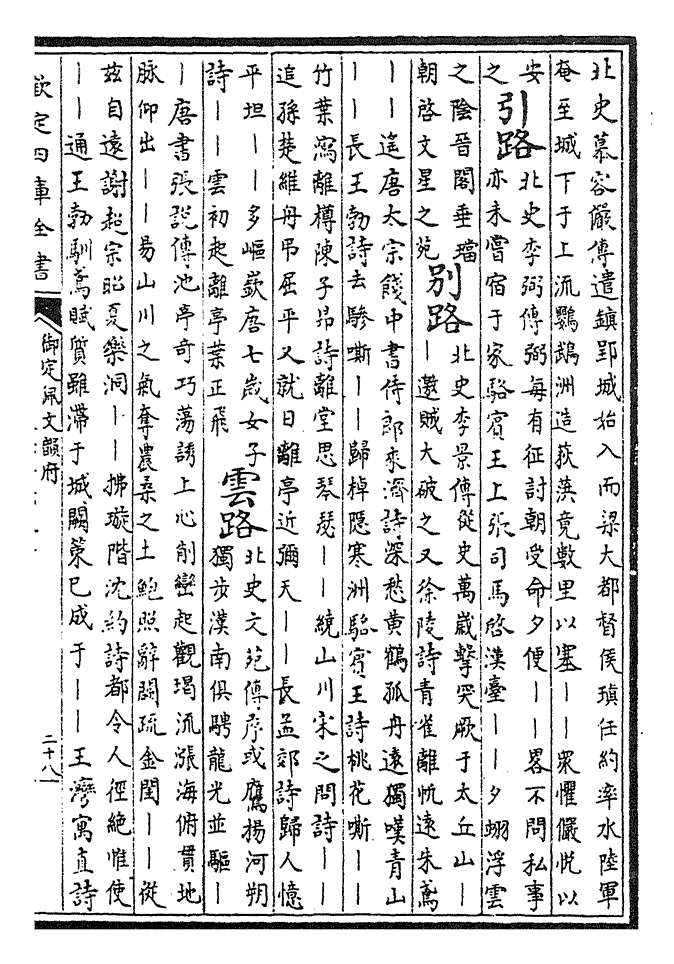 北史慕容儼傳遣鎮郢城始入而梁大都督侯瑱任約率水陸軍
奄至城下于上流鸚鵡洲造荻葓竟數里以塞——衆懼儼悅以
安
之
引路
北史李弼傳弼每有征討朝受命夕便——畧不問私事
亦未嘗宿于家駱賓王上張司馬啓漢臺——夕翊浮雲
之陰晉閣垂璫
朝啓文星之苑
別路
北史李景傳從史萬歲擊突厥于太丘山—
—邀賊大破之又徐陵詩青雀離帆遠朱鳶
——遙唐太宗餞中書侍郎來濟詩深愁黃鶴孤舟遠獨嘆青山
——長王勃詩去驂嘶——歸棹隱寒洲駱賓王詩桃花嘶——
竹葉瀉離樽陳子昂詩離堂思琴瑟——繞山川宋之問詩——
追孫楚維舟弔屈平又就日離亭近彌天——長孟郊詩歸人憶
平坦——多嶇嶔唐七歲女子
詩——雲初起離亭葉正飛
雲路
北史文苑傳序或鷹揚河朔
獨步漢南俱騁龍光並驅—
—唐書張說傳池亭奇巧蕩誘上心削巒起觀堨流漲海俯貫地
脉仰出——易山川之氣奪農桑之土鮑照辭闕疏金閨——從
茲自遠謝超宗昭夏樂洞——拂璇階沈約詩都令人徑絶惟使
——通王勃馴鳶賦質雖滯于城闕策已成于——王灣寓直詩
欽定四庫全書
御定佩文韻府
二十八